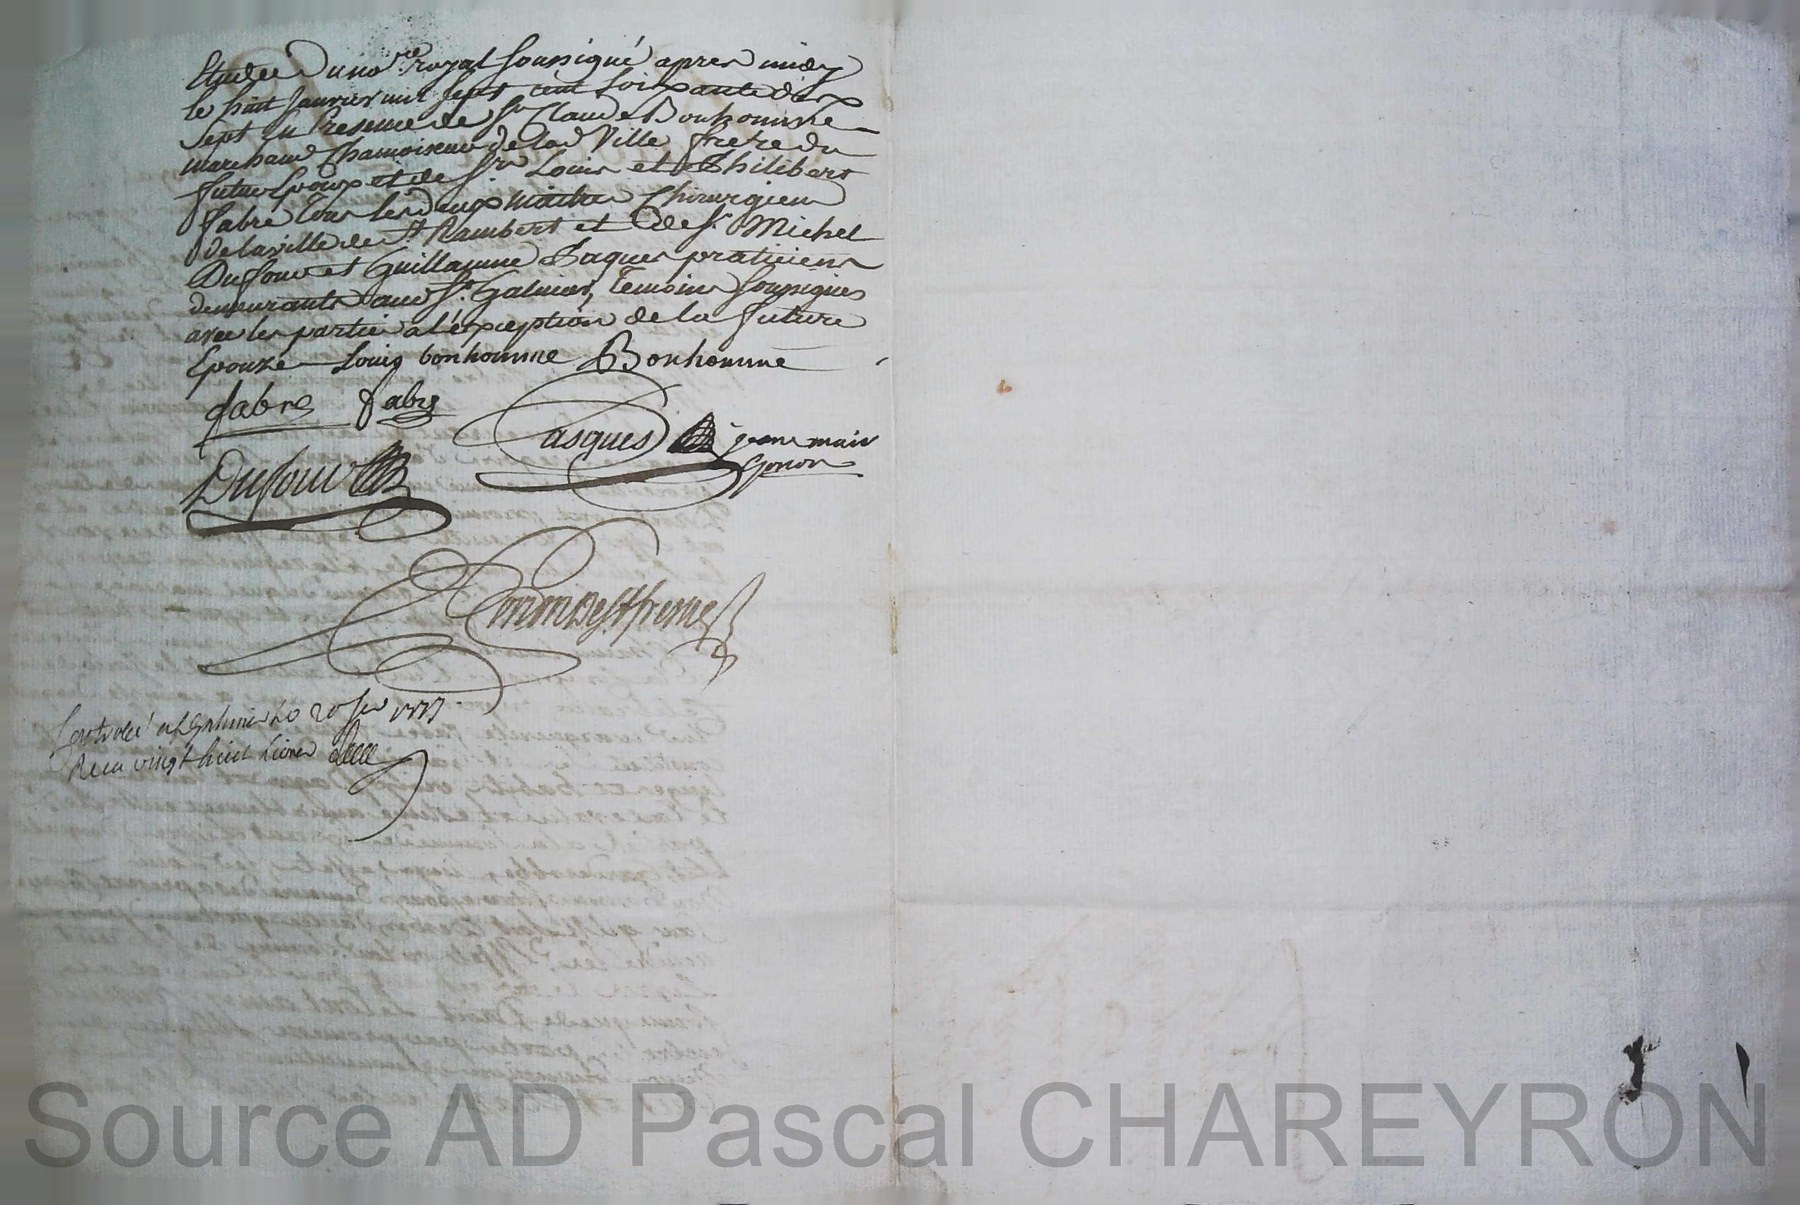 Etude du no.re royal soussigné apres midy
le huit janvier mil sept cent soixante dix
sept en Presence de Sr Claude Bonhomme
marchand Chamoiseur de lad Ville frere du
futur Epoux et de Srs Louis et Philibert
fabre tous les deux maitres Chirurgiens
de la ville de St Rambert et de Sr Michel
Dufour et Guillaume Jaques praticiens
demeurants aud St Galmier, temoins soussignes
avec les parties a l'exception de la future
Epouze Louis bonhomme Bonhomme
fabre fabre
Jasques jeane marie
gonon
Dufour
Controlé a St Galmier le 20 jer 1777
Recu vingt huit livres
Source AD Pascal CHAREYRON